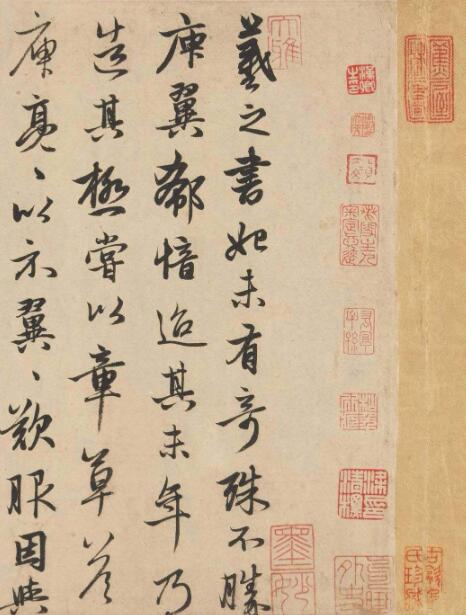 羲之書始未有奇殊不勝
庾翼郗愔迨其末年乃
造其極嘗以章草答
庾亮〻以示翼〻歎服因與
大雅
墨妙